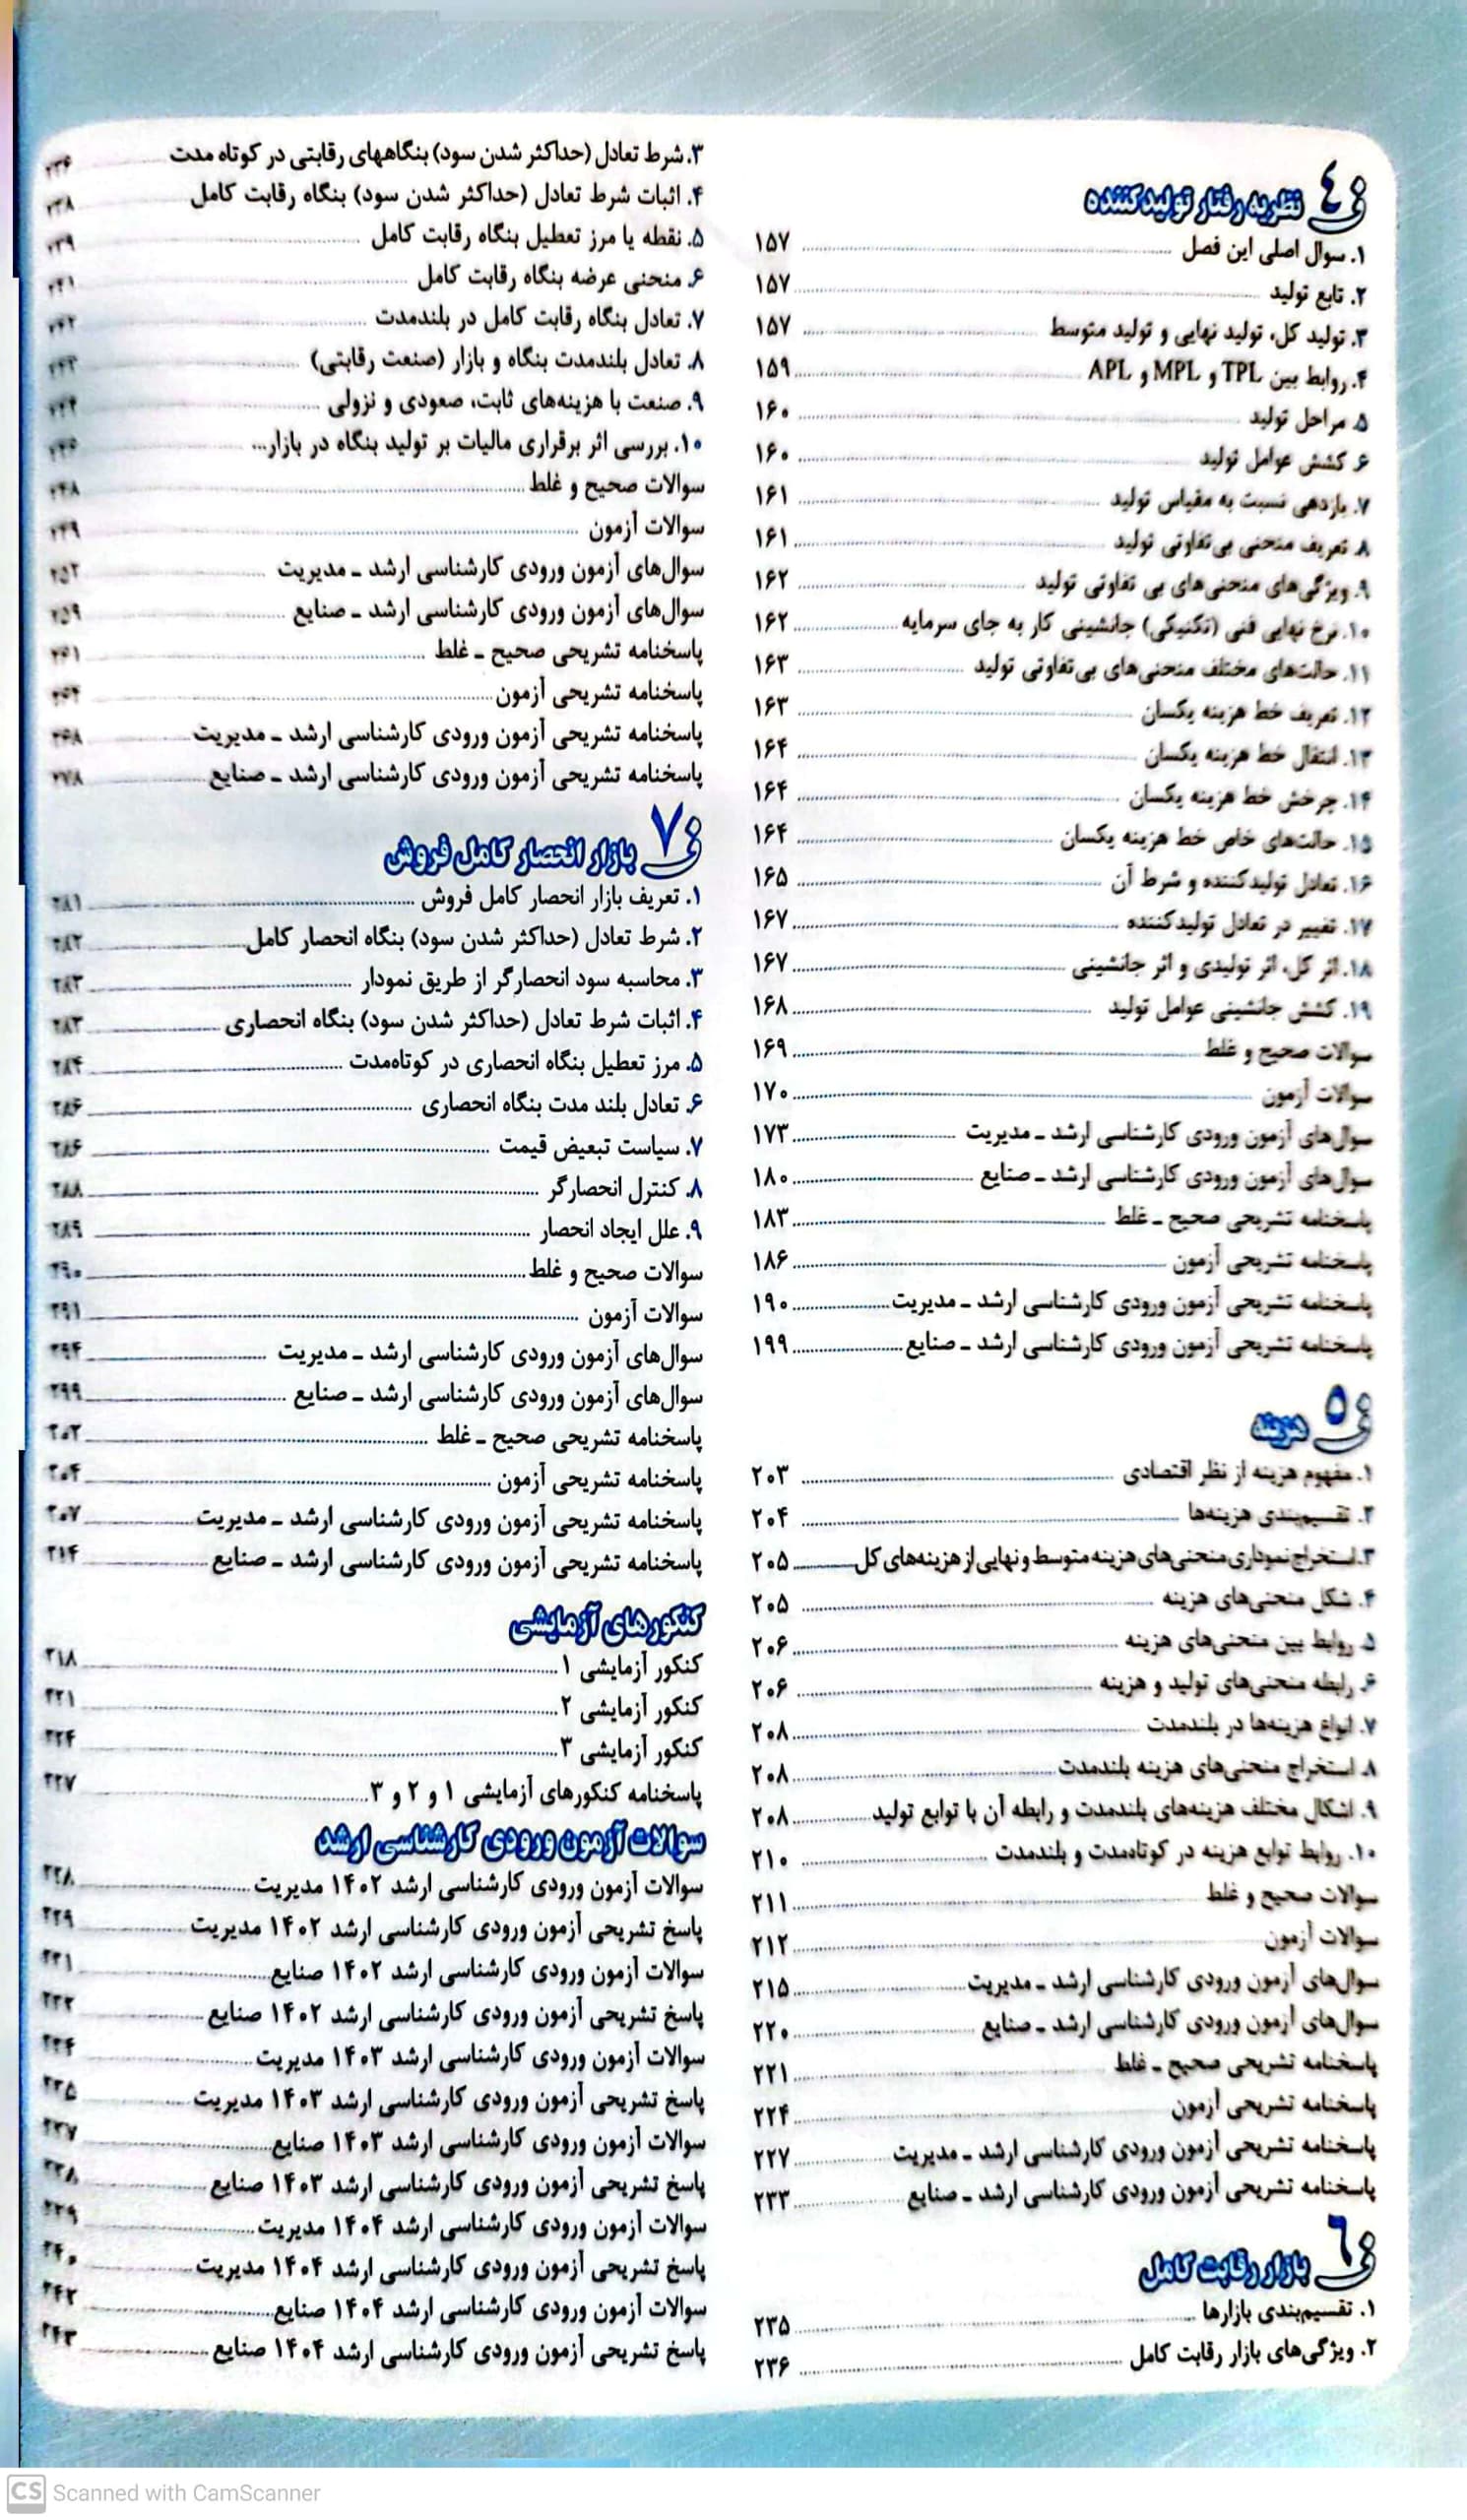 ف ۴ نظریه رفتار تولیدکننده
۱. سوال اصلی این فصل ۱۵۷
۲. تابع تولید ۱۵۷
۳. تولید کل، تولید نهایی و تولید متوسط ۱۵۷
۴. روابط بین TPL و MPL و APL ۱۵۹
۵. مراحل تولید ۱۶۰
۶. کشش عوامل تولید ۱۶۰
۷. بازدهی نسبت به مقیاس تولید ۱۶۱
۸. تعریف منحنی بی‌تفاوتی تولید ۱۶۱
۹. ویژگی‌های منحنی‌های بی تفاوتی تولید ۱۶۲
۱۰. نرخ نهایی فنی (تکنیکی) جانشینی کار به جای سرمایه ۱۶۲
۱۱. حالت‌های مختلف منحنی‌های بی‌تفاوتی تولید ۱۶۳
۱۲. تعریف خط هزینه یکسان ۱۶۳
۱۳. انتقال خط هزینه یکسان ۱۶۴
۱۴. چرخش خط هزینه یکسان ۱۶۴
۱۵. حالت‌های خاص خط هزینه یکسان ۱۶۴
۱۶. تعادل تولیدکننده و شرط آن ۱۶۵
۱۷. تغییر در تعادل تولیدکننده ۱۶۷
۱۸. اثر کل، اثر تولیدی و اثر جانشینی ۱۶۷
۱۹. کشش جانشینی عوامل تولید ۱۶۸
سوالات صحیح و غلط ۱۶۹
سوالات آزمون ۱۷۰
سوال‌های آزمون ورودی کارشناسی ارشد ـ مدیریت ۱۷۳
سوال‌های آزمون ورودی کارشناسی ارشد ـ صنایع ۱۸۰
پاسخنامه تشریحی صحیح ـ غلط ۱۸۳
پاسخنامه تشریحی آزمون ۱۸۶
پاسخنامه تشریحی آزمون ورودی کارشناسی ارشد ـ مدیریت ۱۹۰
پاسخنامه تشریحی آزمون ورودی کارشناسی ارشد ـ صنایع ۱۹۹
ف ۵ هزینه
۱. مفهوم هزینه از نظر اقتصادی ۲۰۳
۲. تقسیم‌بندی هزینه‌ها ۲۰۴
۳. استخراج نموداری منحنی‌های هزینه متوسط و نهایی از هزینه‌های کل ۲۰۵
۴. شکل منحنی‌های هزینه ۲۰۵
۵. روابط بین منحنی‌های هزینه ۲۰۶
۶. رابطه منحنی‌های تولید و هزینه ۲۰۶
۷. انواع هزینه‌ها در بلندمدت ۲۰۸
۸. استخراج منحنی‌های هزینه بلندمدت ۲۰۸
۹. اشکال مختلف هزینه‌های بلندمدت و رابطه آن با توابع تولید ۲۰۸
۱۰. روابط توابع هزینه در کوتاه‌مدت و بلندمدت ۲۱۰
سوالات صحیح و غلط ۲۱۱
سوالات آزمون ۲۱۲
سوال‌های آزمون ورودی کارشناسی ارشد ـ مدیریت ۲۱۵
سوال‌های آزمون ورودی کارشناسی ارشد ـ صنایع ۲۲۰
پاسخنامه تشریحی صحیح ـ غلط ۲۲۱
پاسخنامه تشریحی آزمون ۲۲۴
پاسخنامه تشریحی آزمون ورودی کارشناسی ارشد ـ مدیریت ۲۲۷
پاسخنامه تشریحی آزمون ورودی کارشناسی ارشد ـ صنایع ۲۳۳
ف ۶ بازار رقابت کامل
۱. تقسیم‌بندی بازارها ۲۳۵
۲. ویژگی‌های بازار رقابت کامل ۲۳۶
۳. شرط تعادل (حداکثر شدن سود) بنگاههای رقابتی در کوتاه مدت ۲۳۶
۴. اثبات شرط تعادل (حداکثر شدن سود) بنگاه رقابت کامل ۲۳۸
۵. نقطه یا مرز تعطیل بنگاه رقابت کامل ۲۳۹
۶. منحنی عرضه بنگاه رقابت کامل ۲۴۱
۷. تعادل بنگاه رقابت کامل در بلندمدت
۸. تعادل بلندمدت بنگاه و بازار (صنعت رقابتی)
۹. صنعت با هزینه‌های ثابت، صعودی و نزولی
۱۰. بررسی اثر برقراری مالیات بر تولید بنگاه در بازار...
سوالات صحیح و غلط ۲۴۸
سوالات آزمون ۲۴۹
سوال‌های آزمون ورودی کارشناسی ارشد ـ مدیریت
سوال‌های آزمون ورودی کارشناسی ارشد ـ صنایع ۲۵۹
پاسخنامه تشریحی صحیح ـ غلط
پاسخنامه تشریحی آزمون
پاسخنامه تشریحی آزمون ورودی کارشناسی ارشد ـ مدیریت ۲۶۸
پاسخنامه تشریحی آزمون ورودی کارشناسی ارشد ـ صنایع ۲۷۸
ف ۷ بازار انحصار کامل فروش
۱. تعریف بازار انحصار کامل فروش ۲۸۱
۲. شرط تعادل (حداکثر شدن سود) بنگاه انحصار کامل ۲۸۲
۳. محاسبه سود انحصارگر از طریق نمودار ۲۸۳
۴. اثبات شرط تعادل (حداکثر شدن سود) بنگاه انحصاری ۲۸۳
۵. مرز تعطیل بنگاه انحصاری در کوتاه‌مدت ۲۸۴
۶. تعادل بلند مدت بنگاه انحصاری ۲۸۶
۷. سیاست تبعیض قیمت ۲۸۶
۸. کنترل انحصارگر ۲۸۸
۹. علل ایجاد انحصار ۲۸۹
سوالات صحیح و غلط ۲۹۰
سوالات آزمون ۲۹۱
سوال‌های آزمون ورودی کارشناسی ارشد ـ مدیریت ۲۹۴
سوال‌های آزمون ورودی کارشناسی ارشد ـ صنایع ۲۹۹
پاسخنامه تشریحی صحیح ـ غلط ۳۰۲
پاسخنامه تشریحی آزمون ۳۰۴
پاسخنامه تشریحی آزمون ورودی کارشناسی ارشد ـ مدیریت ۳۰۷
پاسخنامه تشریحی آزمون ورودی کارشناسی ارشد ـ صنایع ۳۱۴
کنکورهای آزمایشی
کنکور آزمایشی ۱ ۳۱۸
کنکور آزمایشی ۲ ۳۲۱
کنکور آزمایشی ۳ ۳۲۴
پاسخنامه کنکورهای آزمایشی ۱ و ۲ و ۳ ۳۲۷
سوالات آزمون ورودی کارشناسی ارشد
سوالات آزمون ورودی کارشناسی ارشد ۱۴۰۲ مدیریت ۳۲۸
پاسخ تشریحی آزمون ورودی کارشناسی ارشد ۱۴۰۲ مدیریت ۳۲۹
سوالات آزمون ورودی کارشناسی ارشد ۱۴۰۲ صنایع ۳۳۱
پاسخ تشریحی آزمون ورودی کارشناسی ارشد ۱۴۰۲ صنایع
سوالات آزمون ورودی کارشناسی ارشد ۱۴۰۳ مدیریت
پاسخ تشریحی آزمون ورودی کارشناسی ارشد ۱۴۰۳ مدیریت ۳۳۵
سوالات آزمون ورودی کارشناسی ارشد ۱۴۰۳ صنایع ۳۳۷
پاسخ تشریحی آزمون ورودی کارشناسی ارشد ۱۴۰۳ صنایع ۳۳۸
سوالات آزمون ورودی کارشناسی ارشد ۱۴۰۴ مدیریت ۳۳۹
پاسخ تشریحی آزمون ورودی کارشناسی ارشد ۱۴۰۴ مدیریت ۳۴۰
سوالات آزمون ورودی کارشناسی ارشد ۱۴۰۴ صنایع ۳۴۲
پاسخ تشریحی آزمون ورودی کارشناسی ارشد ۱۴۰۴ صنایع ۳۴۳
CS Scanned with CamScanner